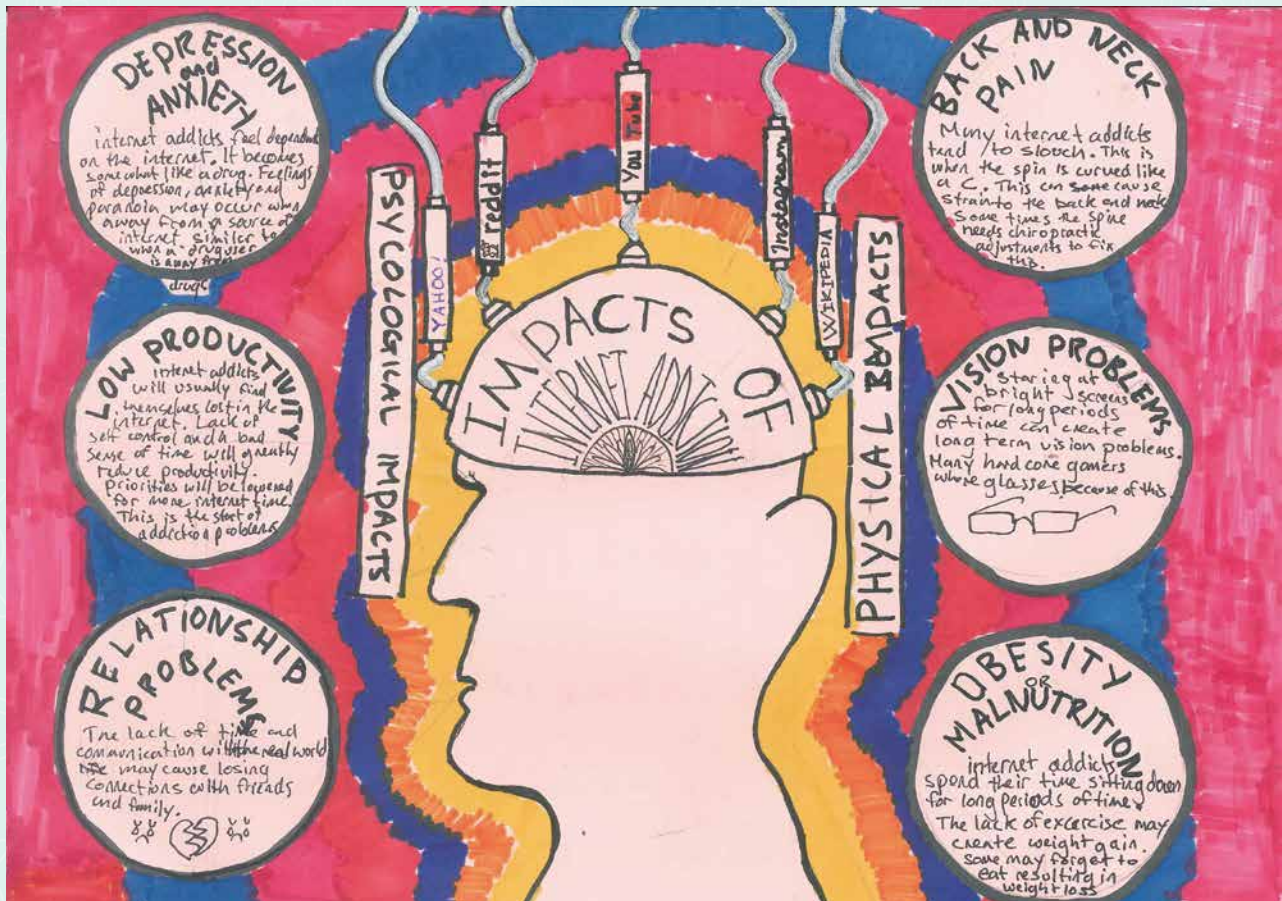 IMPACTS OF
INTERNET ADDICTION
YAHOO!
reddit
You Tube
Instagram
WIKIPEDIA
PSYCOLOGICAL IMPACTS
DEPRESSION
and
ANXIETY
internet addicts feel dependent
on the internet. It becomes
somewhat like a drug. Feelings
of depression, anxiety and
paranoia may occur when
away from a source of
internet similer to
when a drug user
is away from
drugs
LOW PRODUCTIVITY
internet addicts
will usually find
themselves lost in the
internet. Lack of
self control and a bad
sense of time will greatly
reduce productivity.
priorities will be lowered
for more internet time.
This is the start of
addiction problems
RELATIONSHIP
PROBLEMS
The lack of time and
communication with the real world
may cause losing
connections with friends
and family.
PHYSICAL IMPACTS
BACK AND NECK
PAIN
Many internet addicts
tend to slouch. This is
when the spin is curved like
a C. This can cause
strain to the back and neck
Some times the spine
needs chiropractic
adjustments to fix
this.
VISION PROBLEMS
Staring at
bright screens
for long periods
of time can create
long term vision problems.
Many hard core gamers
whore glasses because of this.
OBESITY
OR
MALNUTRITION
internet addicts
spend their time sitting down
for long periods of time.
The lack of excercise may
create weight gain.
some may forget to
eat resulting in
weight loss